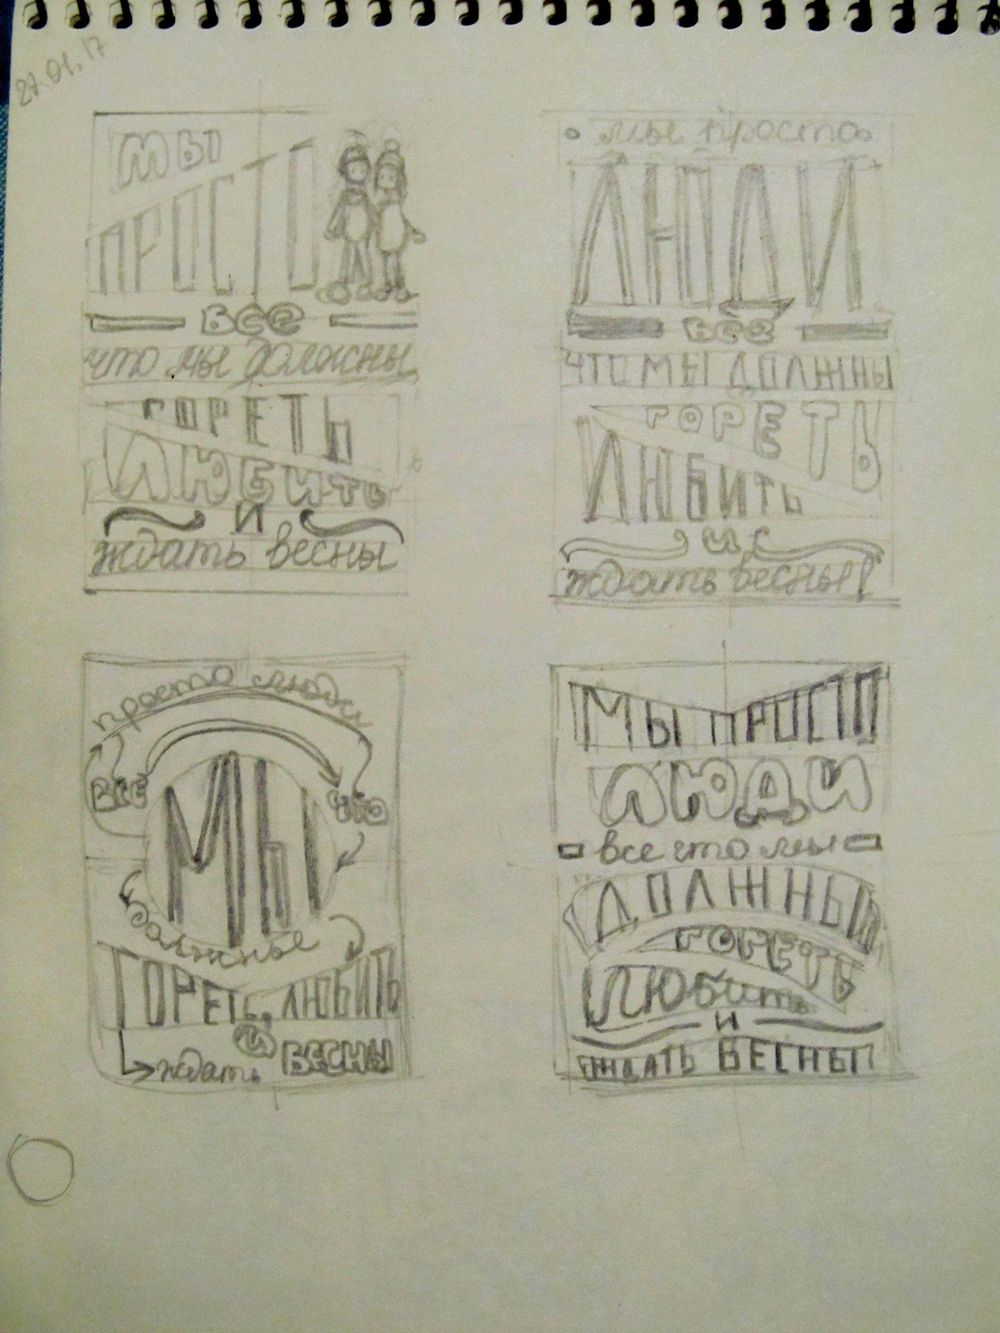 27.01.17
мы
ПРОСТО
все
что мы должны
ГОРЕТЬ
ЛЮБИТЬ
и
ждать весны
мы просто
ЛЮДИ
все
ЧТО МЫ ДОЛЖНЫ
ГОРЕТЬ
ЛЮБИТЬ
и
ждать весны!
просто люди
ВСЕ
ЧТО
МЫ
должны
ГОРЕТЬ, ЛЮБИТЬ
и
ждать ВЕСНЫ
МЫ ПРОСТО
ЛЮДИ
все что мы
ДОЛЖНЫ
ГОРЕТЬ
Любить
и
ЖДАТЬ ВЕСНЫ